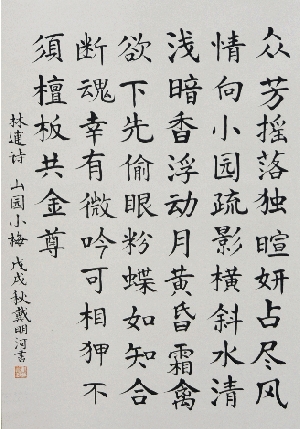 众芳摇落独暄妍占尽风
情向小园疏影横斜水清
浅暗香浮动月黄昏霜禽
欲下先偷眼粉蝶如知合
断魂幸有微吟可相狎不
须檀板共金尊
林逋诗 山园小梅 戊戌秋戴明河书